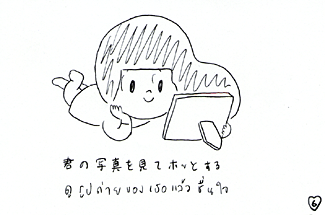 君の写真を見てホッとする
ดูรูปถ่ายของเธอแล้วชื่นใจ
6